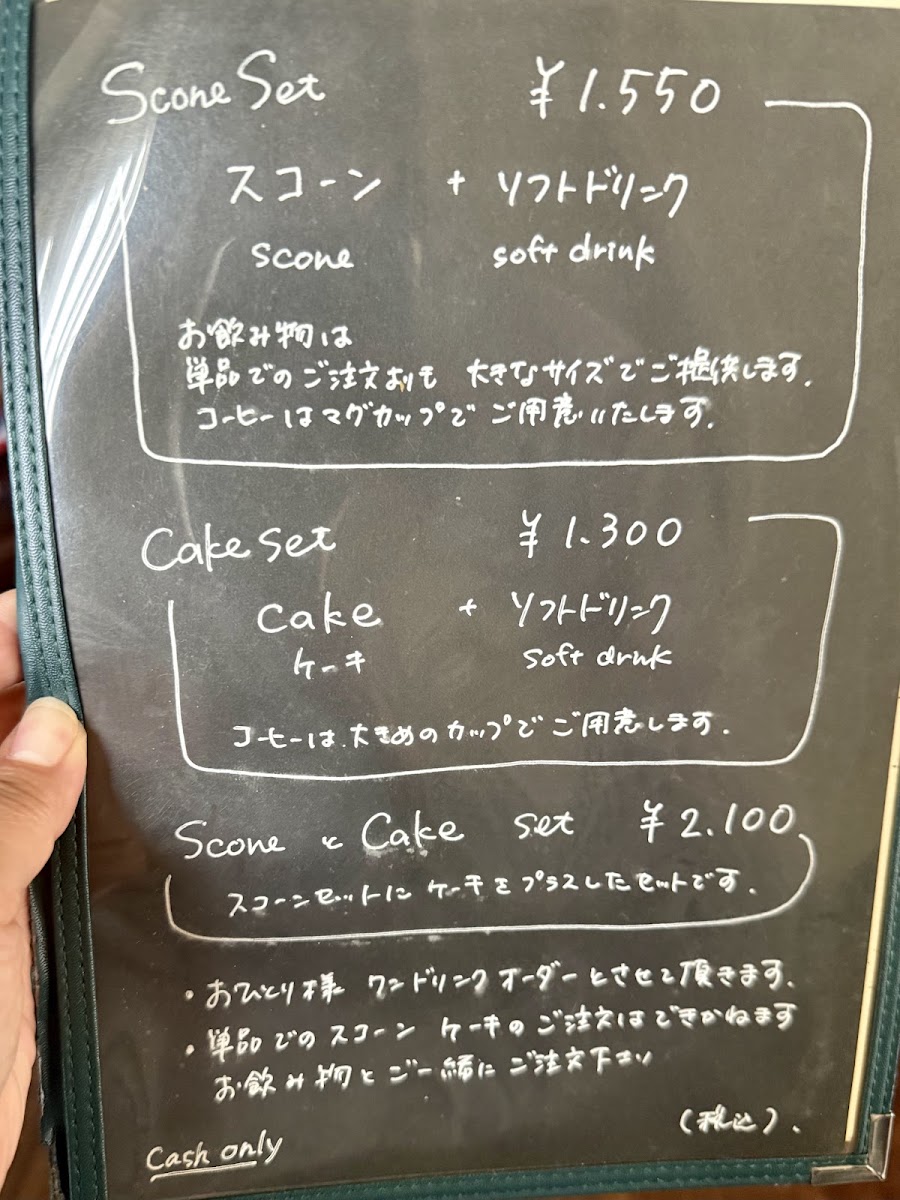 Scone Set ¥1.550
スコーン + ソフトドリンク
scone soft drink
お飲み物は
単品でのご注文よりも 大きなサイズでご提供します.
コーヒーはマグカップでご用意いたします.
Cake set ¥1.300
cake + ソフトドリンク
ケーキ soft drink
コーヒーは、大きめのカップでご用意します.
Scone と Cake set ¥2.100
スコーンセットにケーキをプラスしたセットです.
・おひとり様 ワンドリンクオーダーとさせて頂きます.
・単品でのスコーン ケーキのご注文はできかねます
お飲み物とご一緒にご注文下さい
(税込).
Cash only